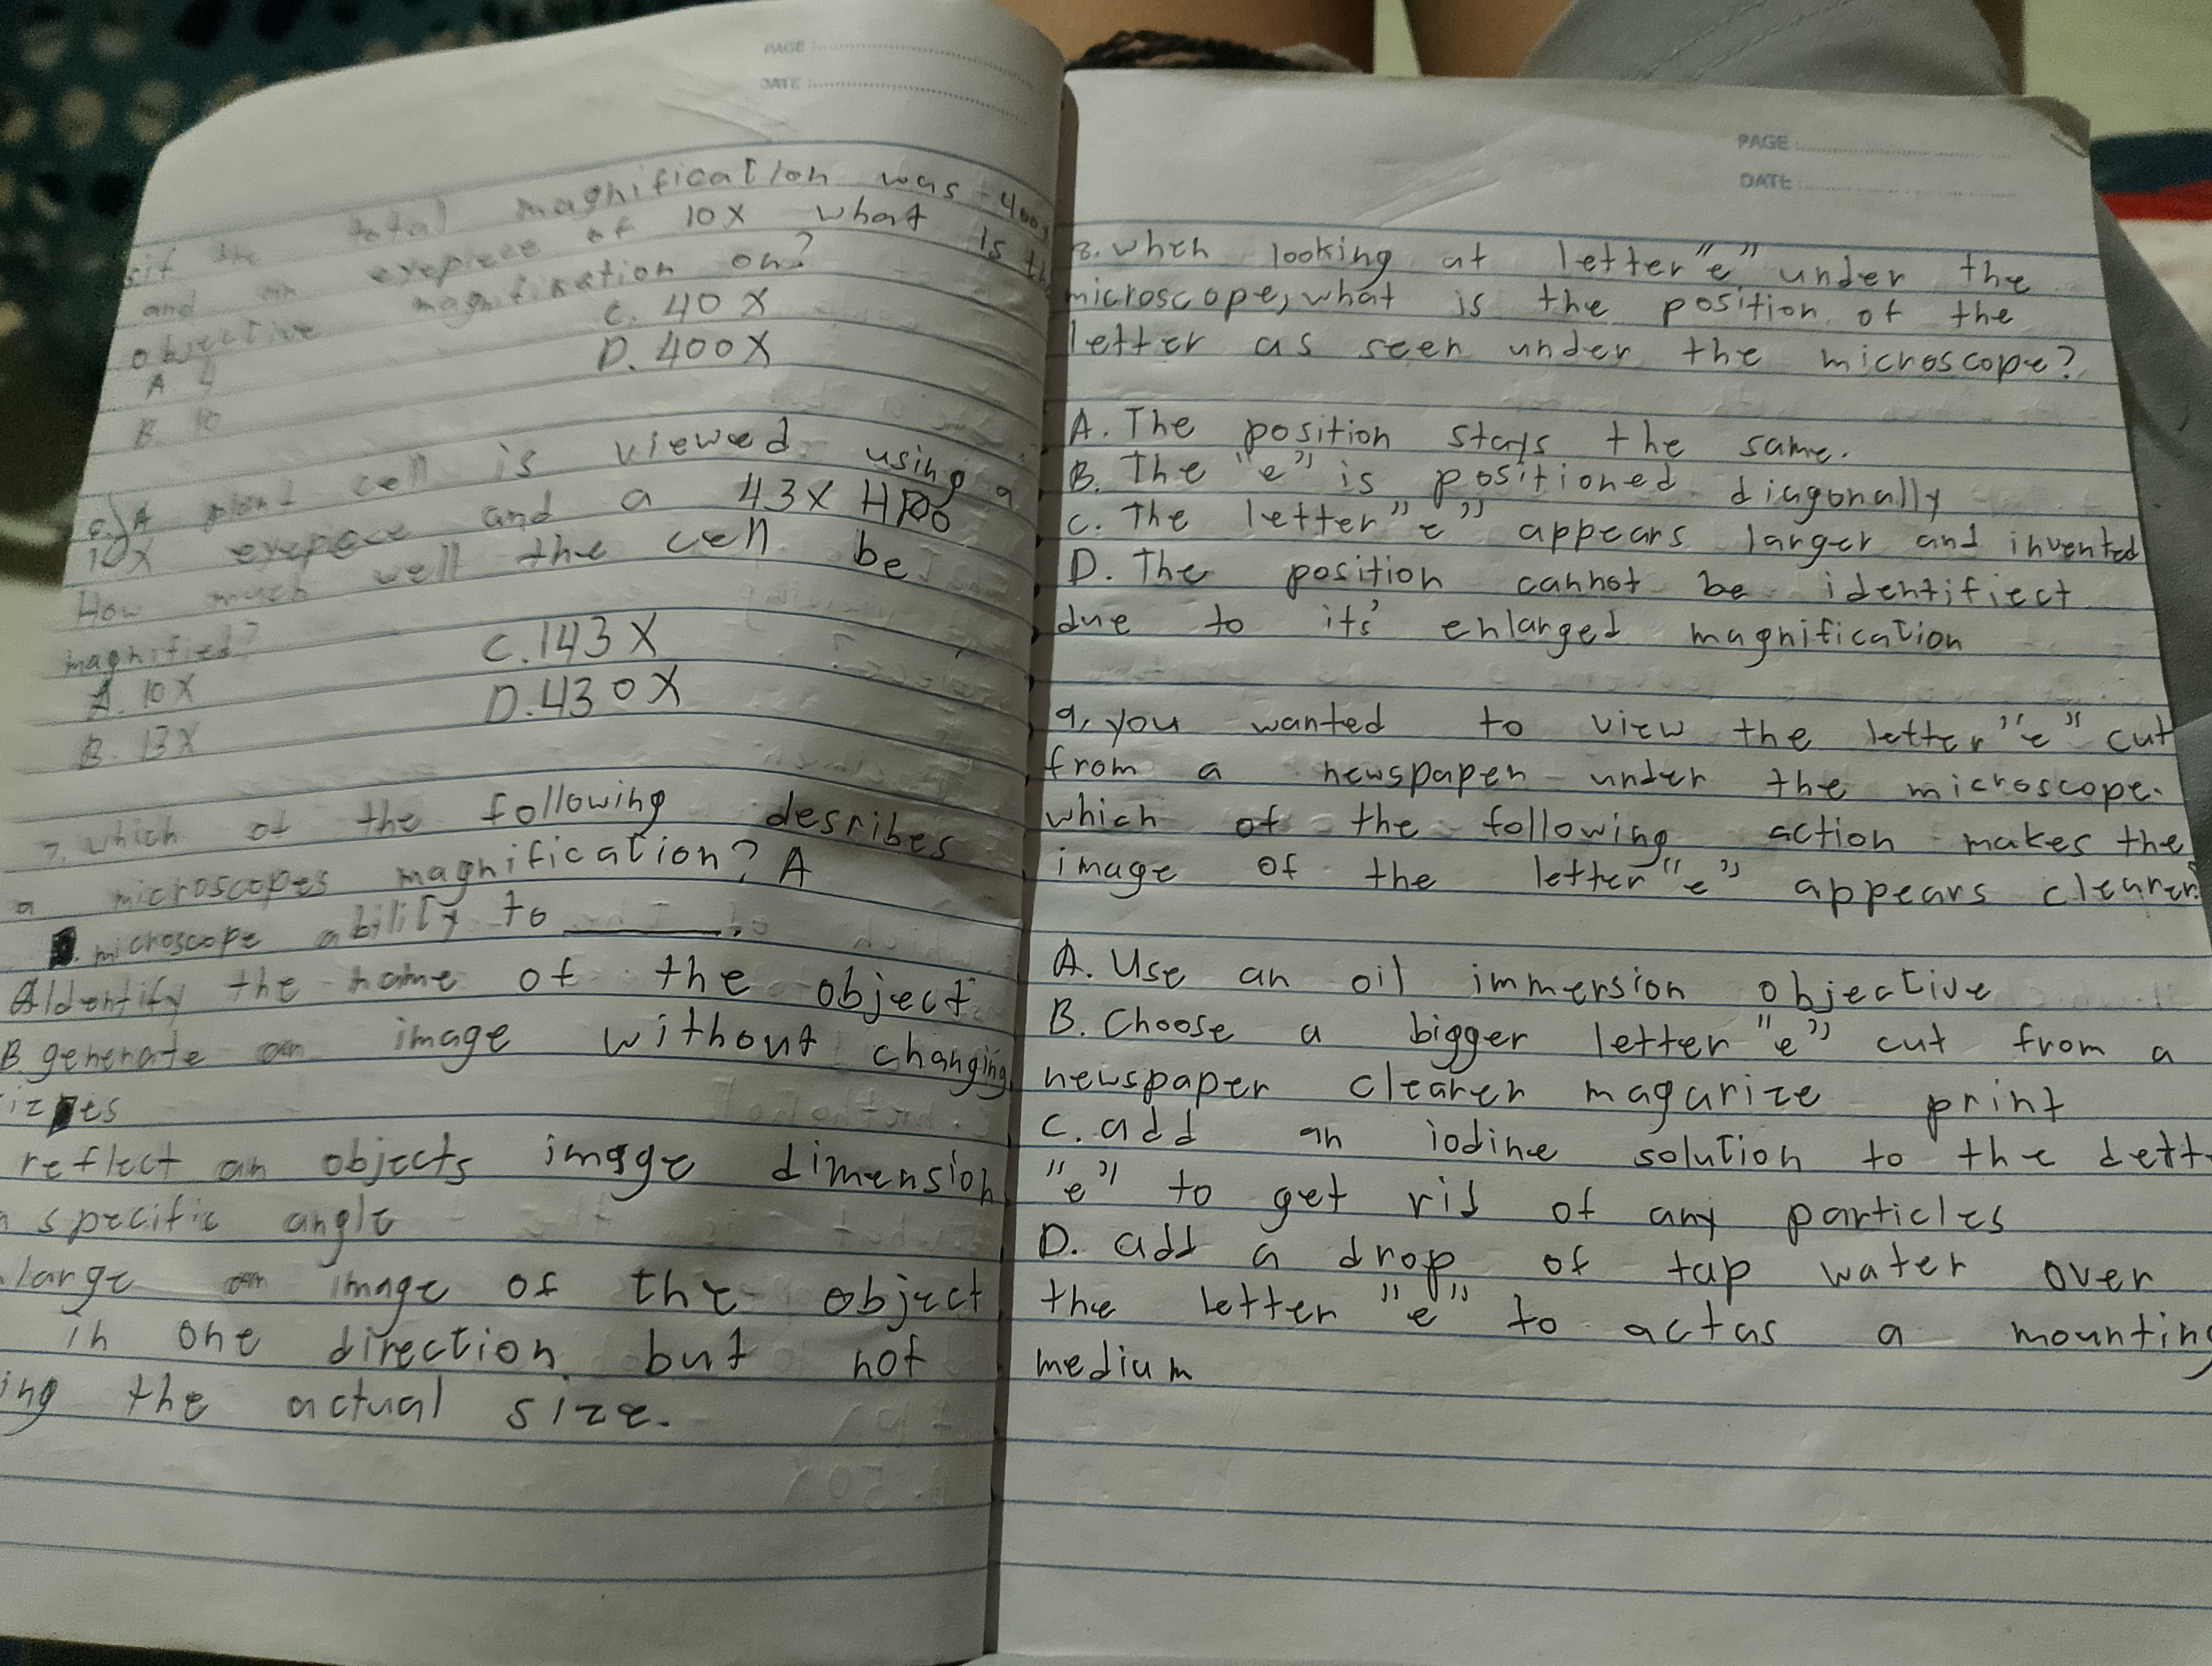 PAGE
DATE
5. if the total magnification was 400x
and an eyepiece of 10X what is th
objective magnification on?
A 4
B. 10
C. 40 X
D. 400X
6.) A plant cell is viewed using a
10X eyepiece and a 43X HPO
How much well the cell be
magnified?
A. 10 X
B. 13X
C. 143 X
D. 430X
7. which of the following desribes
a microscopes magnification? A
microscope ability to ______.
A Identify the name of the object
B. generate an image without changing
izes
reflect an objects image dimension
specific angle
large an image of the object
in one direction but not
ing the actual size.
PAGE
DATE
8. when looking at letter "e" under the
microscope, what is the position of the
letter as seen under the microscope?
A. The position stays the same.
B. The "e" is positioned diagonally
C. The letter "e" appears larger and invented
D. The position cannot be identifiect
due to it's enlarged magnification
9, you wanted to view the letter "e" cut
from a newspaper under the microscope.
which of the following action makes the
image of the letter "e" appears clearer?
A. Use an oil immersion objective
B. Choose a bigger letter "e" cut from a
newspaper clearer magarize print
C. add an iodine solution to the lett
"e" to get rid of any particles
D. add a drop of tap water over
the letter "e" to act as a mounting
medium